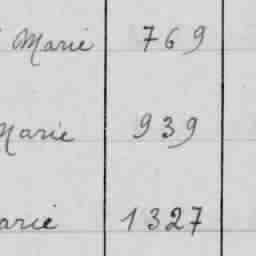 Marie 769
Marie 939
arie 1327